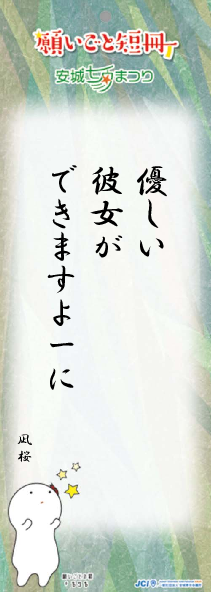 願いごと短冊
安城七夕まつり
優しい
彼女が
できますよーに
凪桜
JCI